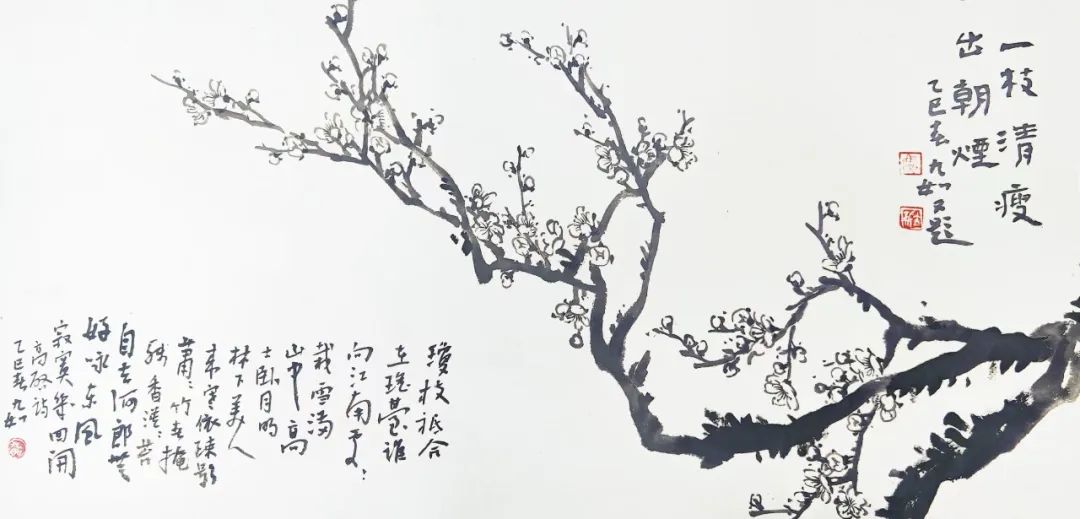 一枝清瘦
出朝煙
乙巳春九如又题
瓊枝祇合
在瑶臺誰
向江南处〻
栽雪满
山中高
士卧月明
林下美人
来寒依疎影
蕭〻竹春掩
残香漠〻苔
自去何郎無
好咏东风
寂寞幾回開
高啓詩
乙巳春九如